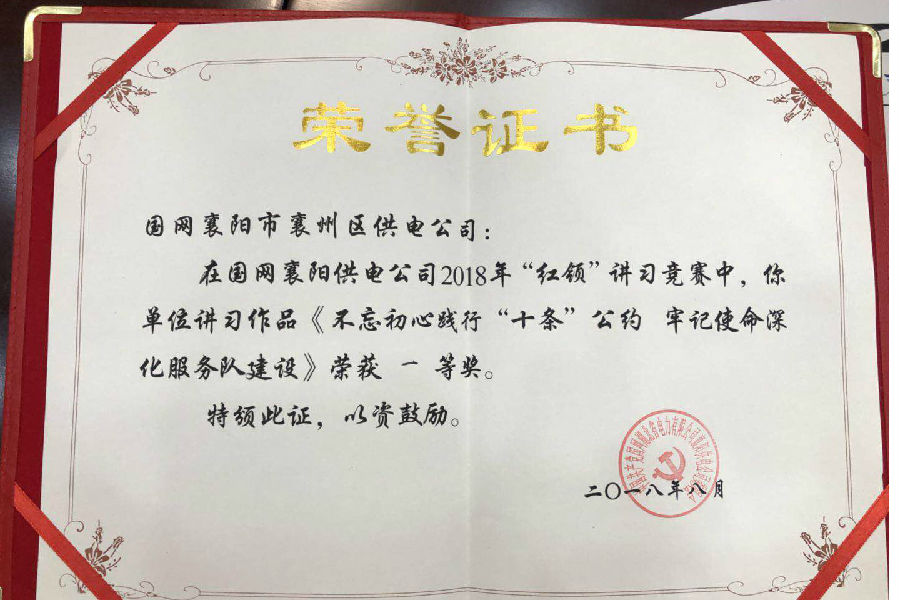 荣誉证书
国网襄阳市襄州区供电公司:
在国网襄阳供电公司2018年“红领”讲习竞赛中，你
单位讲习作品《不忘初心践行“十条”公约 牢记使命深
化服务队建设》荣获 一 等奖。
特颁此证，以资鼓励。
二〇一八年八月